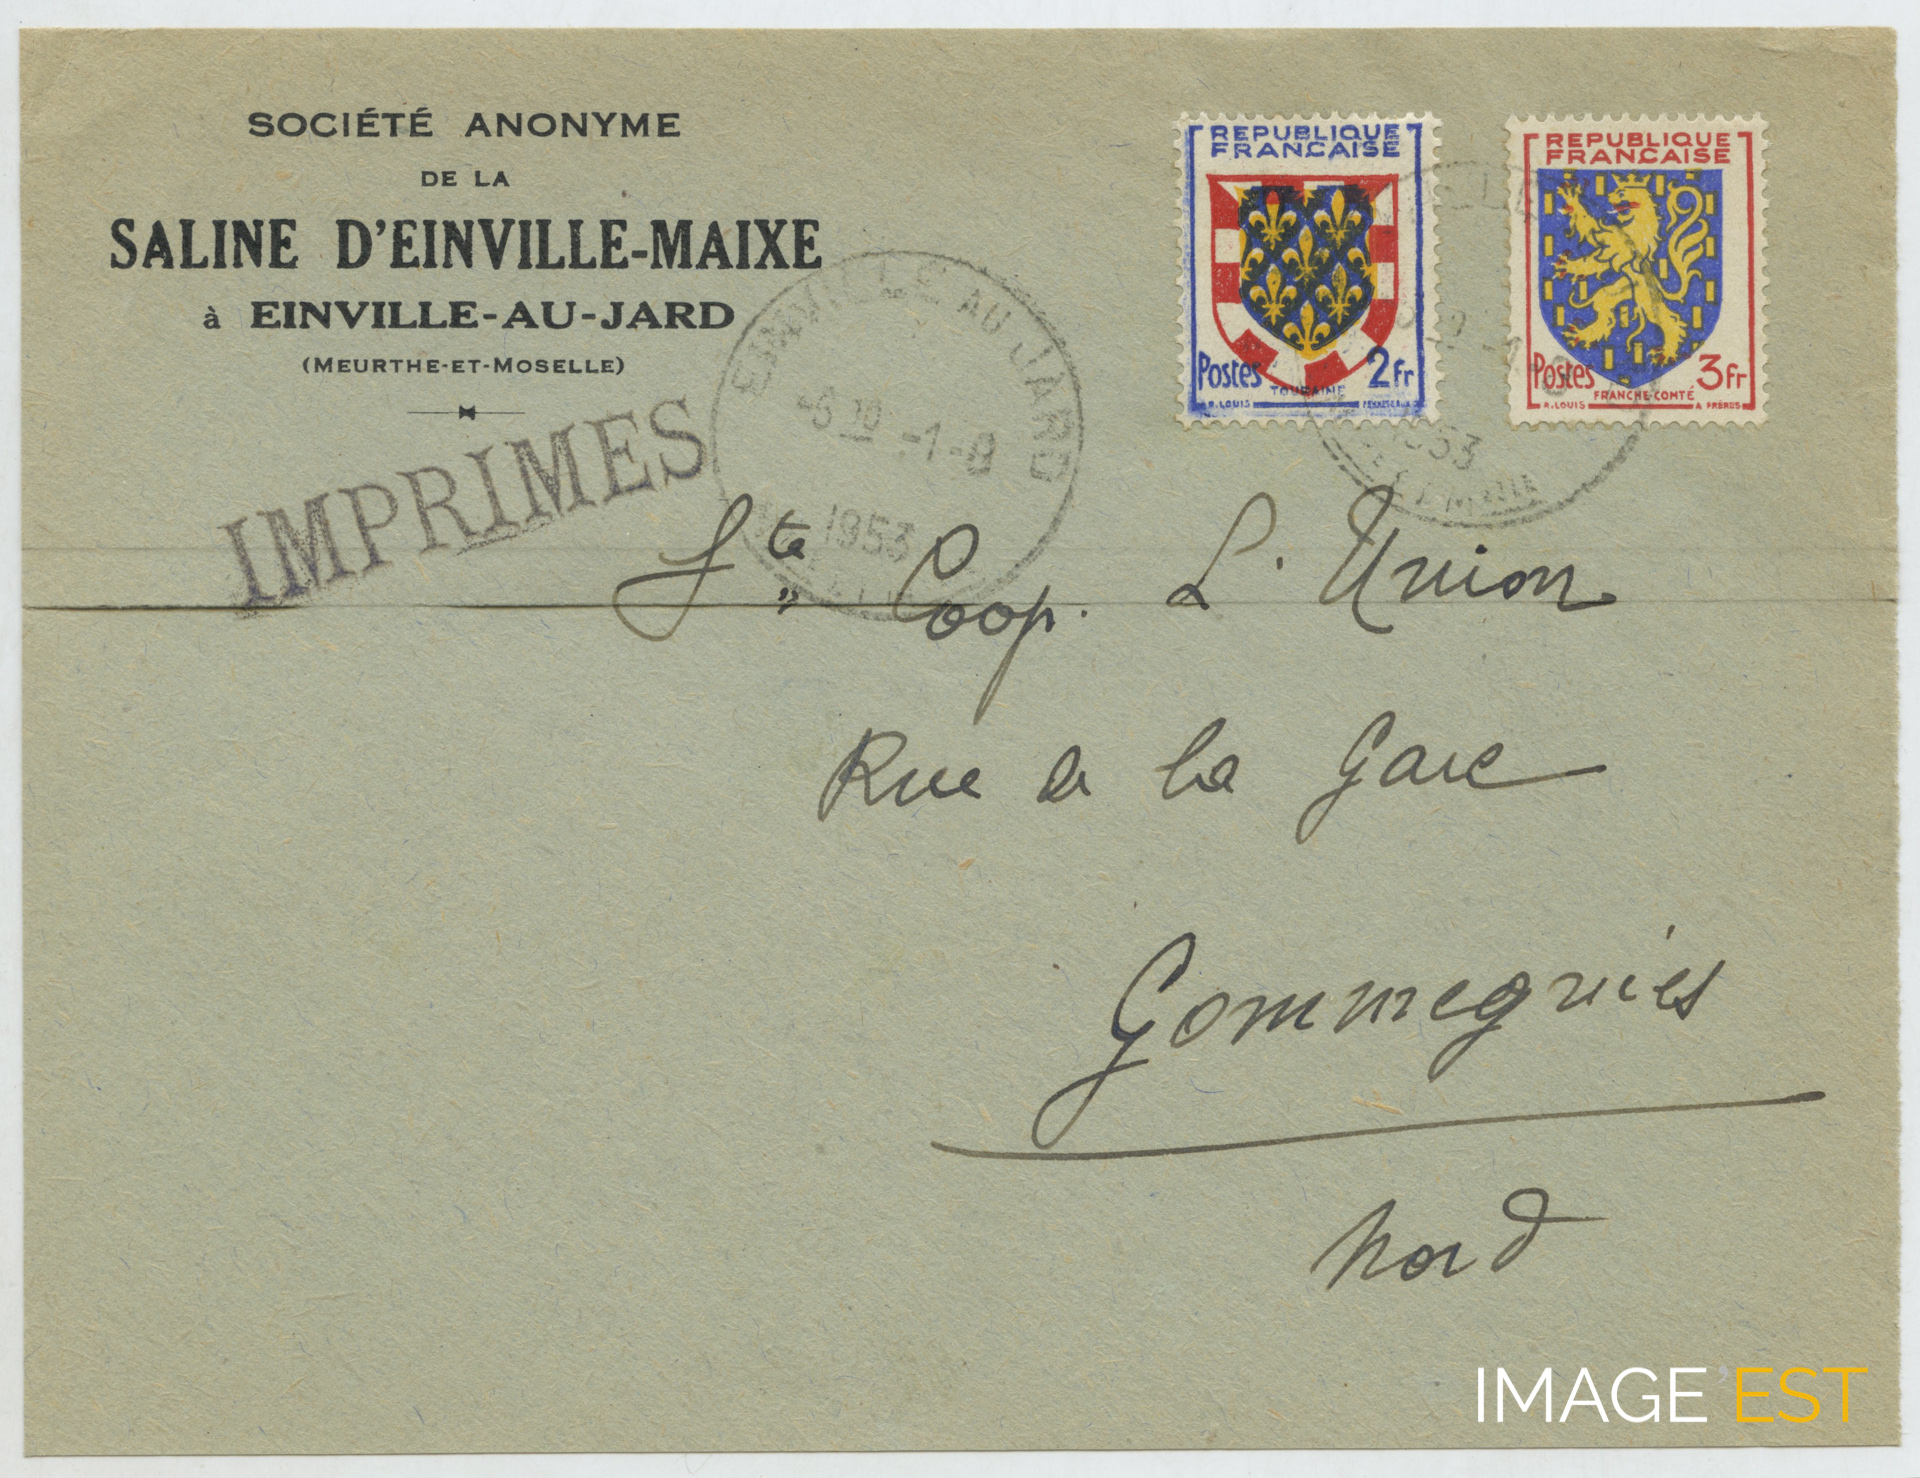 SOCIÉTÉ ANONYME
DE LA
SALINE D'EINVILLE-MAIXE
à EINVILLE-AU-JARD
(MEURTHE-ET-MOSELLE)
IMPRIMES
EINVILLE AU JARD
-6 10 -1-8
1953
REPUBLIQUE
FRANÇAISE
Postes 2fr
TOURAINE
R.LOUIS
REPUBLIQUE
FRANÇAISE
Postes 3fr
FRANCHE-COMTÉ
R.LOUIS
1953
Sté Coop. L'Union
Rue de la Gare
Gommegnies
Nord
IMAGE'EST